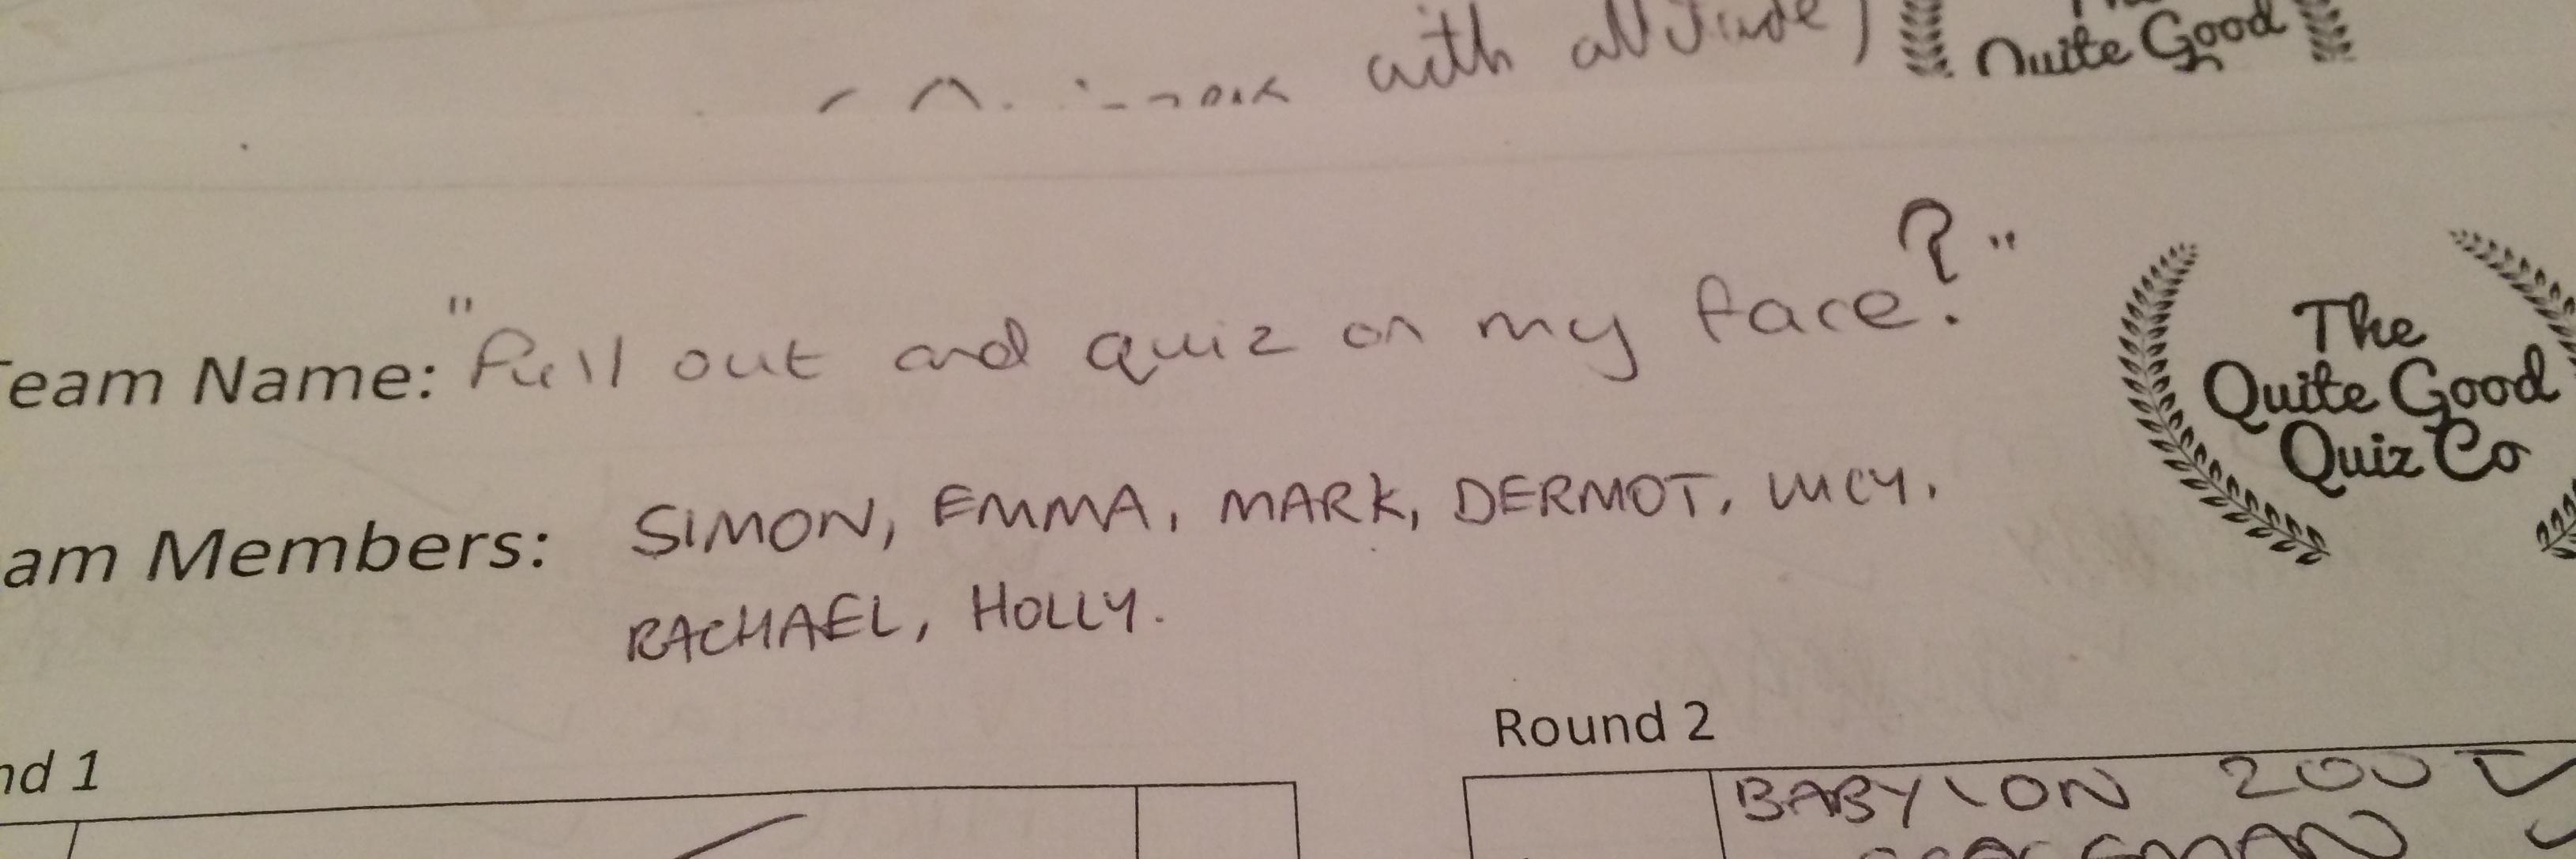 with attitude)
Quite Good
Team Name: "Pull out and quiz on my face?"
The
Quite Good
Quiz Co
am Members: SIMON, EMMA, MARK, DERMOT, LUCY,
RACHAEL, HOLLY.
nd 1
Round 2
BABYLON ZOO